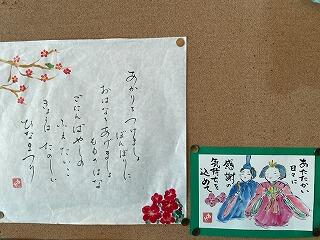 あかりをつけましょ
ぼんぼりに
おはなをあげましょ
もものはな
ごにんばやしの
ふえたいこ
きょうは たのしい
ひなまつり
あたたかい
日々に
感謝の
気持ちを
込めて